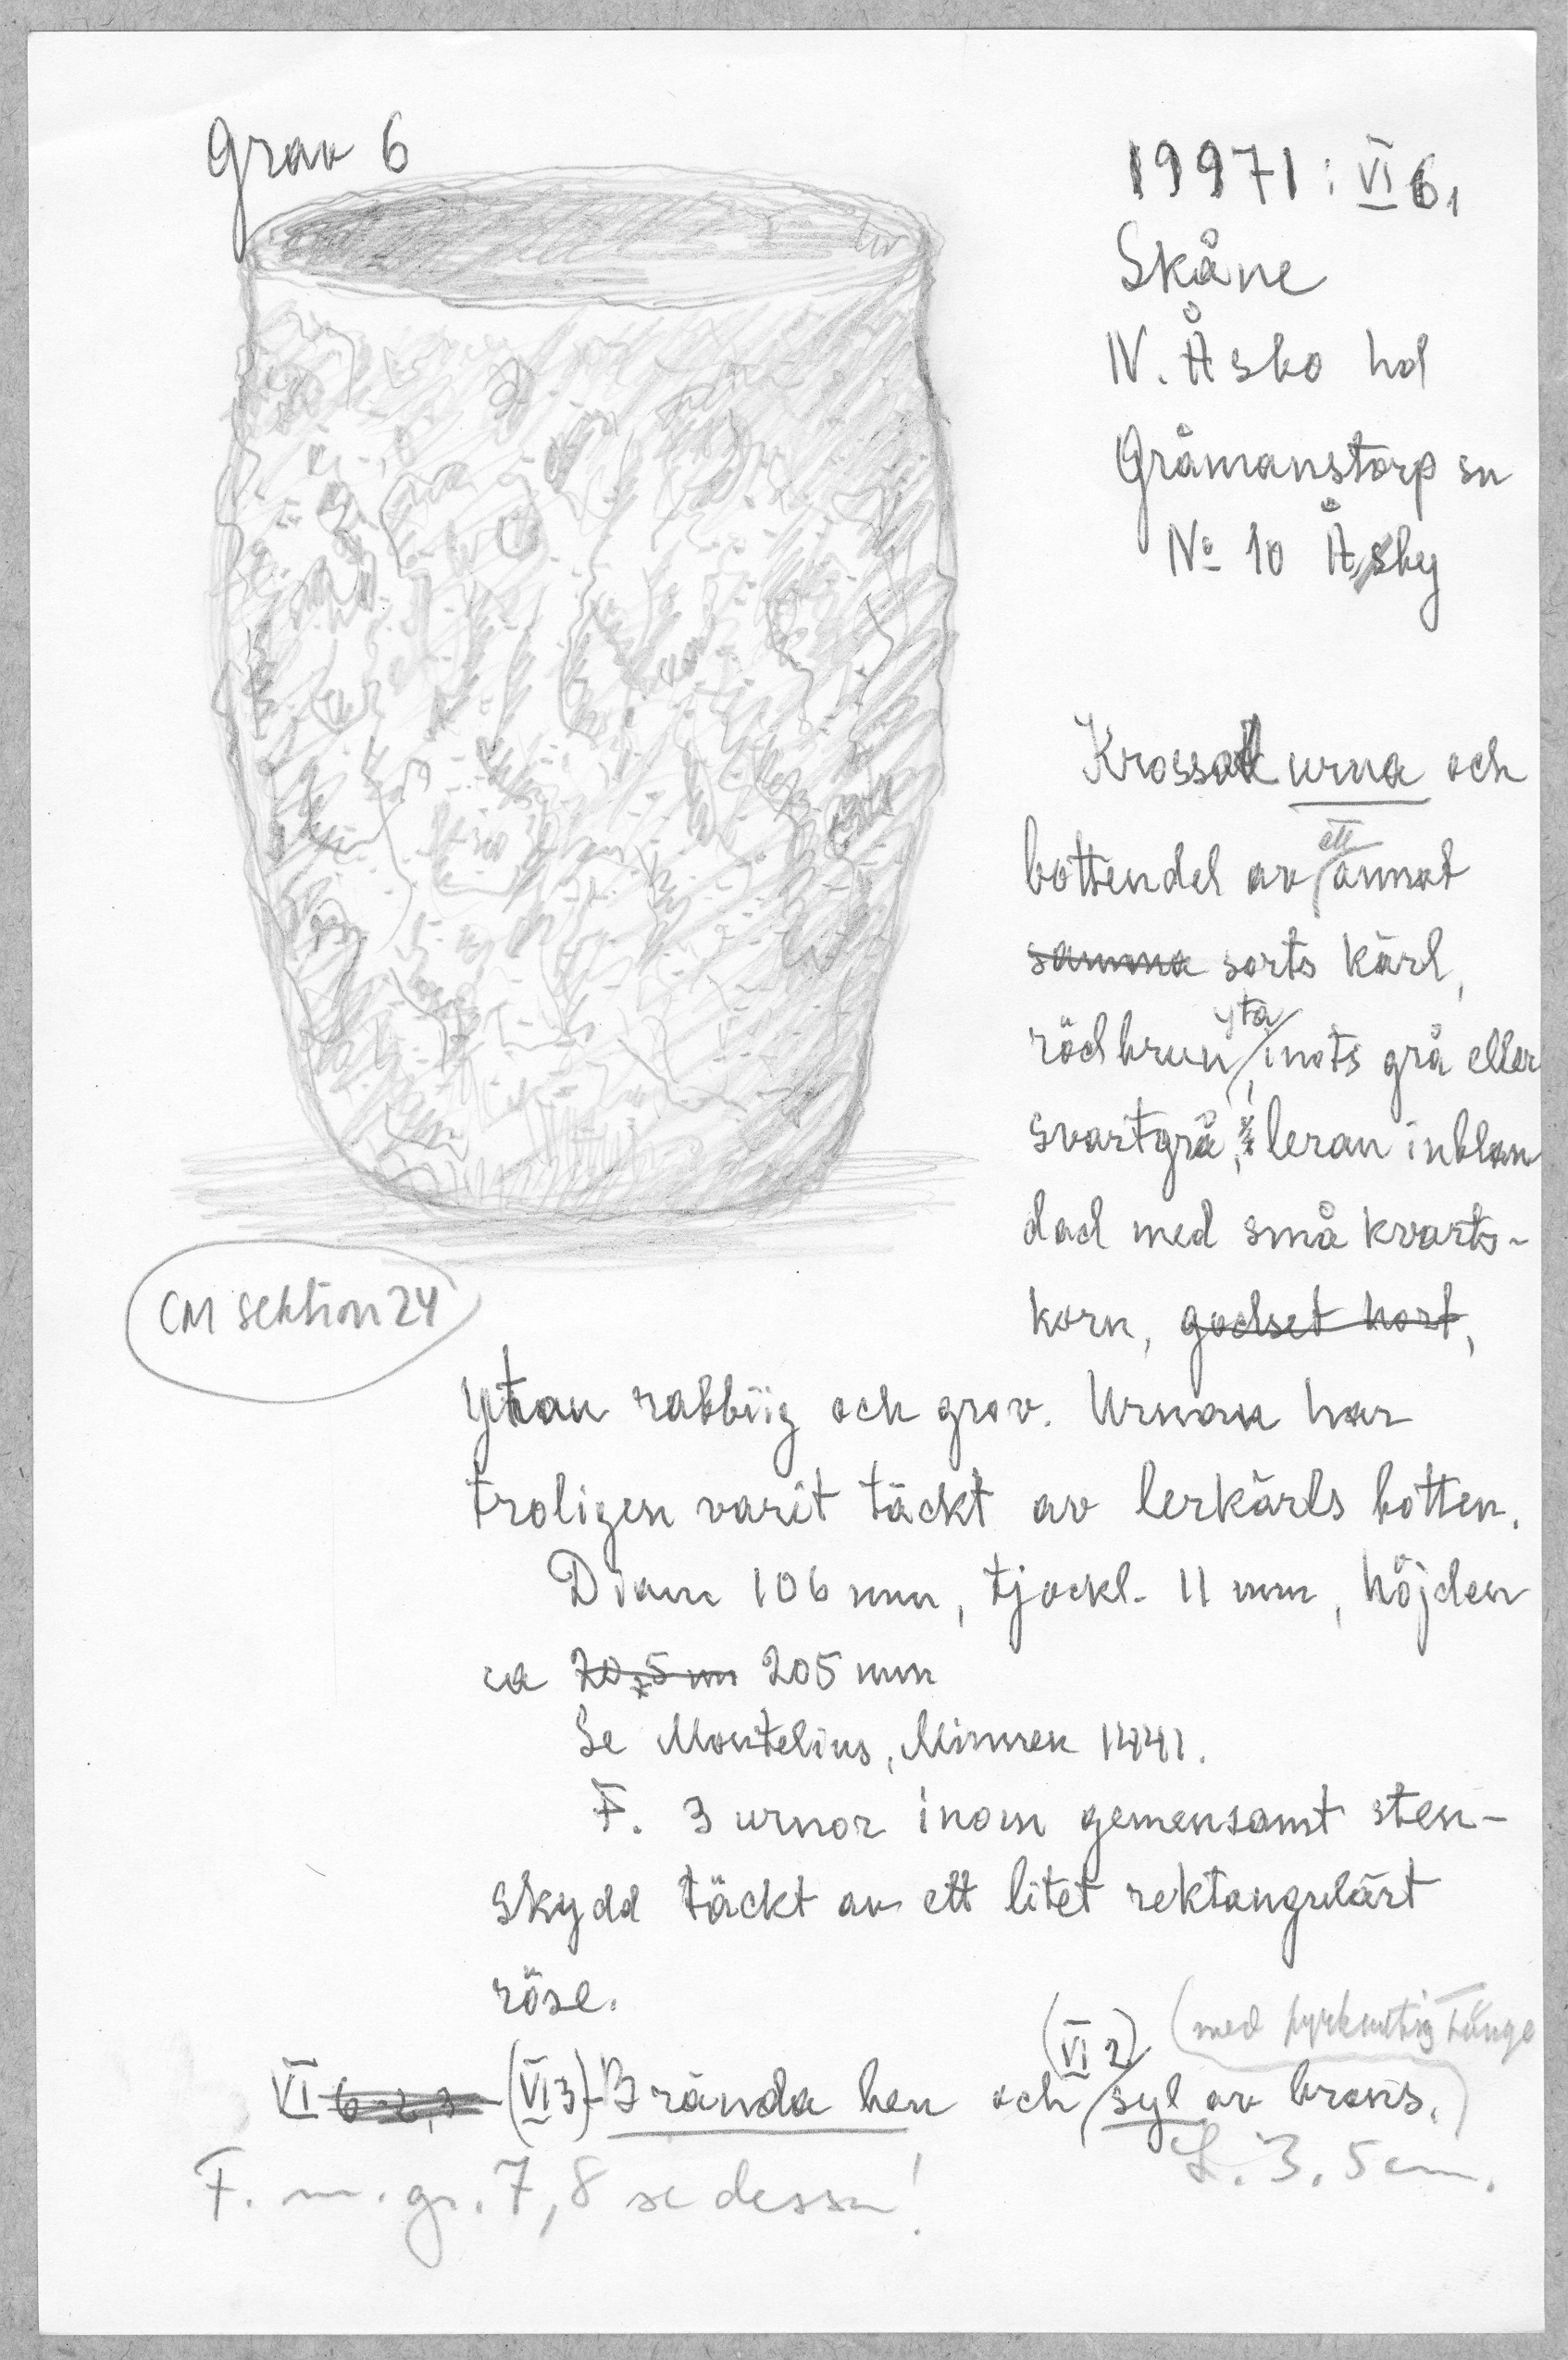 grav 6
19971 : VI 6,
Skåne
N. Åsbo hd
Gråmanstorp sn
No 10 Åby
Krossad urna och
bottendel av ett annat
samma sorts kärl,
rödbrun yta, inots grå eller
svartgrå, leran inblan
dad med små kvarts-
korn, godset hort,
CM sektion 24
ytan rabbiig och grov. Urnan har
troligen varit täckt av lerkärls botten.
Diam 106 mm, tjockl. 11 mm, höjden
ca 20,5 cm 205 mm
Se Montelius, Minnen 1441.
F. 3 urnor inom gemensamt sten-
skydd täckt av ett litet rektangulärt
röse.
(med tånge
VI 6 2,3 (VI 3) Brända ben och (VI 2) syl av brons.)
L. 3,5 cm.
F. m. gr. 7, 8 se dessa!